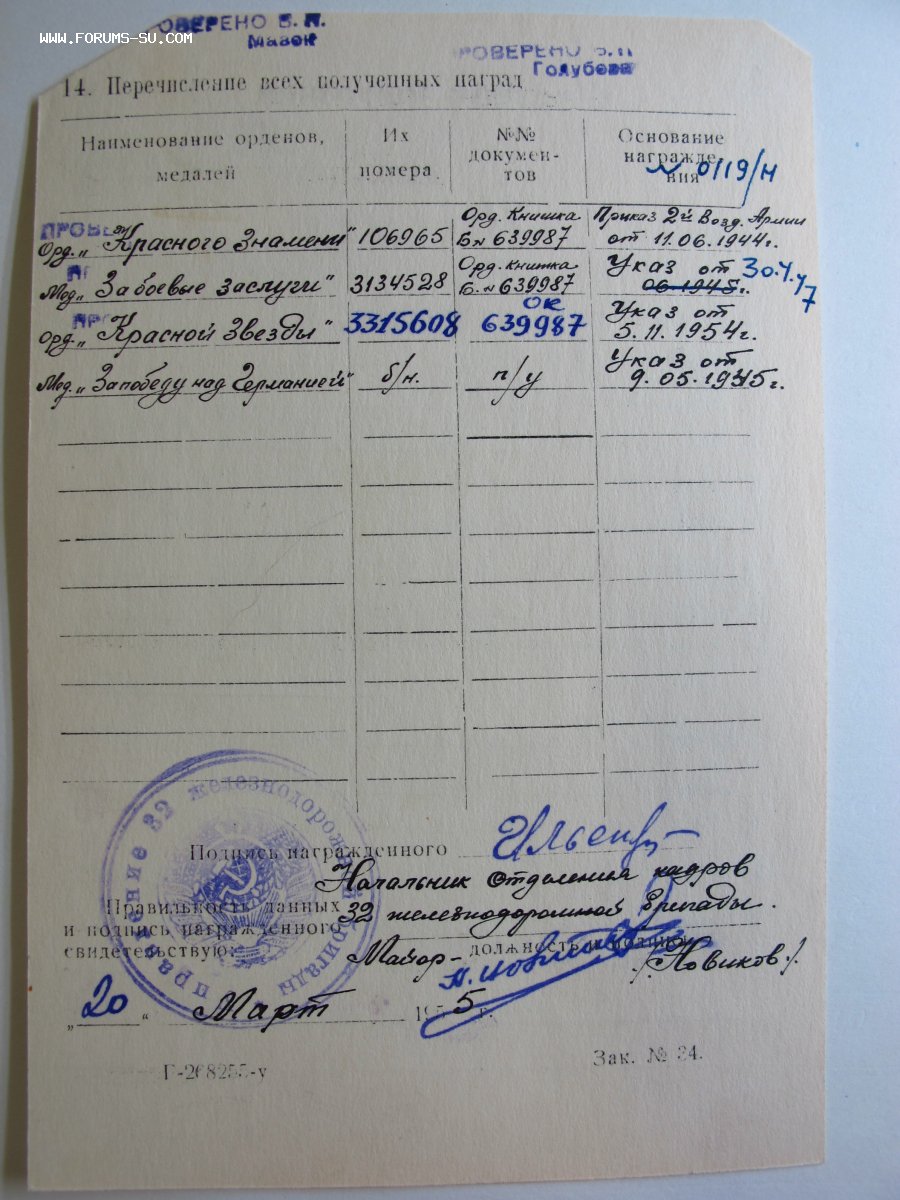 ОВЕРЕНО В. П.
Мазок
www.forums-su.com
РОВЕРЕНО В.П
Голубева
14. Перечисление всех полученных наград
Наименование орденов, медалей
Их номера
№№ докумен-тов
Основание награжде-ния
N 0119/н
ПРОВЕ
Орд. „Красного Знамени" 106965 Орд. Книжка Б.N 639987 Приказ 2й Возд. Армии от 11.06.1944г.
Мед. „За боевые заслуги" 3134528 Орд. Книжка Б.N 639987 Указ от 06.1945г. 30.4.47
ПРО
Орд. „Красной Звезды" 3315608 ОК 639987 Указ от 5.11.1954г.
Мед. „За победу над Германией" б/н. п/у Указ от 9.05.1945г.
Подпись награжденного
Начальник Отделения кадров
Правильность данных
32 железнодорожной бригады.
и подпись награжденного
свидетельствую:
Майор - /Новиков/.
„20" Март 1955 г.
Управление 32 железнодорожной бригады
Г-268255-у
Зак. № 34.